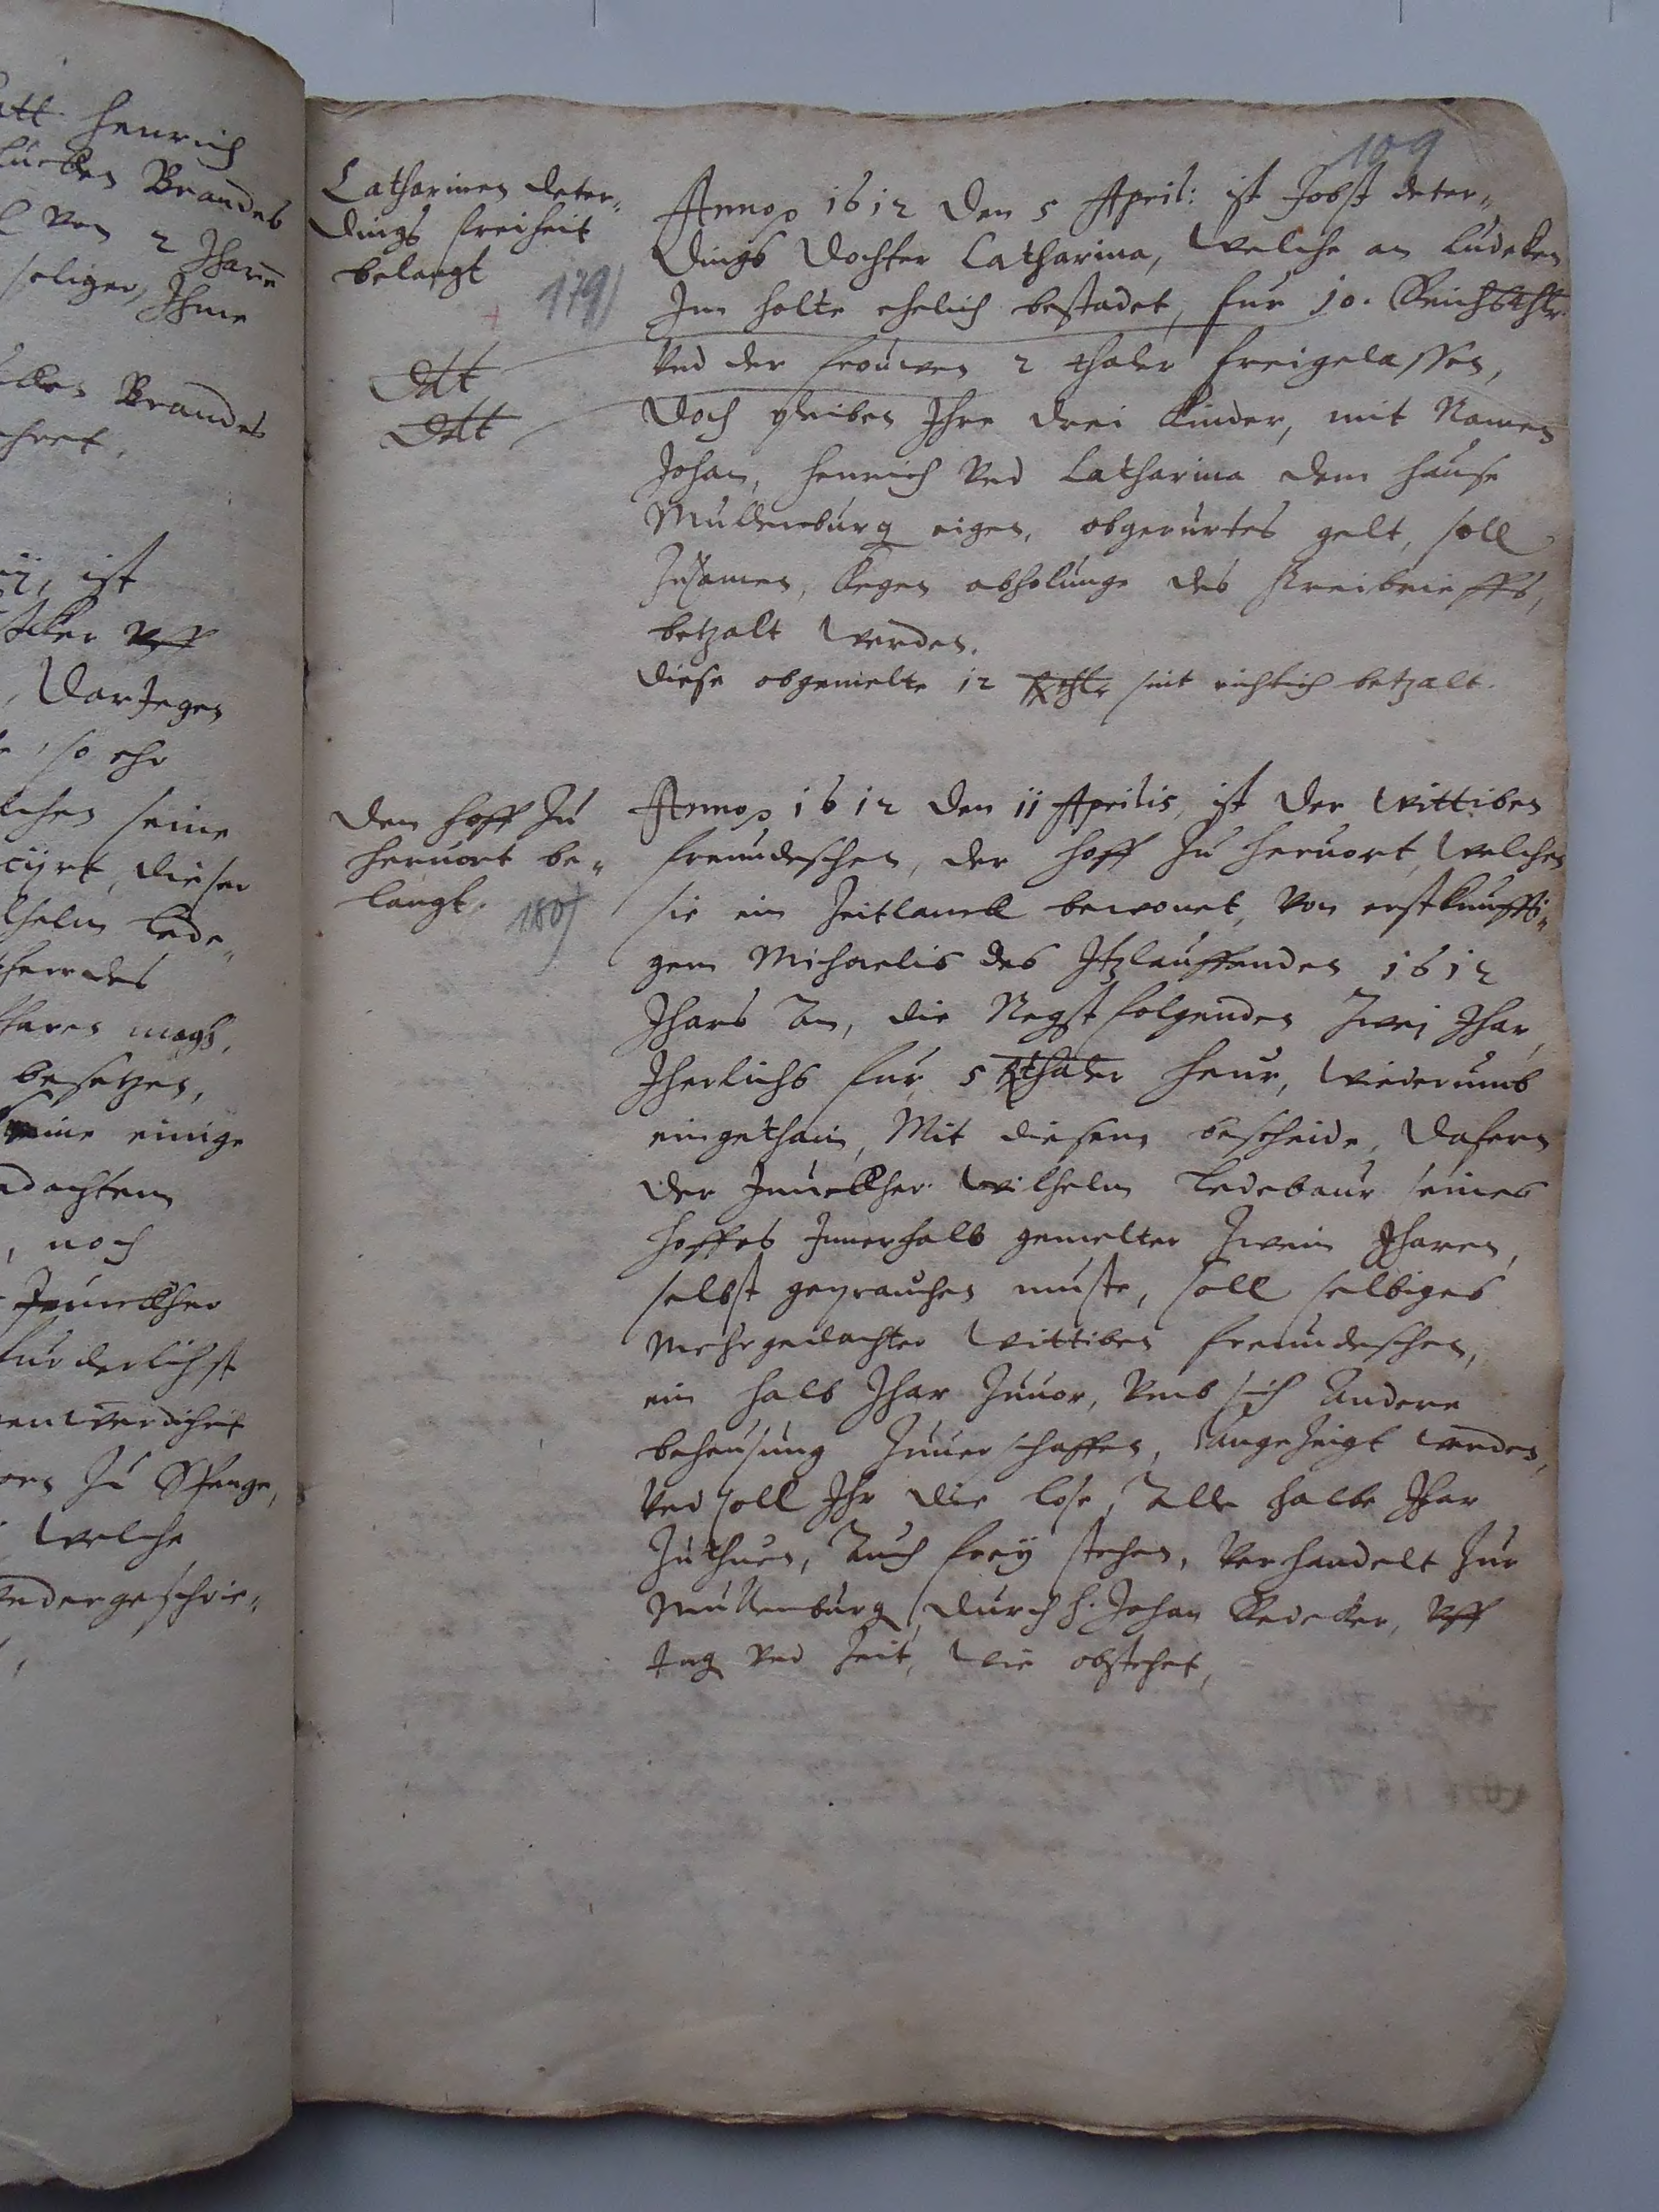 att Henrich
Lucken Brandes
2 Jharn
seliger, Ihme
Brandes
ist
Acker vff
, Darjegen
, so ehr
seine
dieser
Wilhelm Lede-
magh,
besetzen,
keine einige
dachtem
, noch
Junckher
furderlichst
zu Spenge,
welche
vndergeschrie-
109
Catharinen Deter-
dings freiheit
belangt
179)
Dtt
Dtt
Anno 1612 den 5 April: ist Jobst Deter-
dings Dochter Catharina, welche an Ludeken
Im Holte ehelich bestadet, fur 10. Reichsthlr
vnd der frouwen 2 thaler freigelassen,
Doch pleiben Ihre drei Kinder, mit Namen
Johan, Henrich vnd Catharina dem Hause
Mullenburg eigen, obgerurtes gelt, soll
Zusamen, kegen abholunge des Freibrieffs,
betzalt werden.
Diese obgemelte 12 Rthlr sint richtich betzalt.
Den Hoff zu
Heruort be-
langt.
180)
Anno 1612 den 11 Aprilis, ist der Wittiben
Freundeschen, der Hoff zu Heruort, welchen
sie ein Zeitlanck bewonet, von erstkunffti-
gem Michaelis des Itzlauffenden 1612
Jhars An, die Negst folgenden Zwej Jhar,
Jherlichs fur 5 Rthaler Heur, wiederumb
eingethain, Mit diesem bescheide, Dafern
der Junckher Wilhelm Ledebaur seines
Hoffes Innerhalb gemelter Zwein Jharen,
selbst geprauchen muste, soll selbiges
Mehrgedachter Wittiben Freundeschen,
ein halb Jhar Zuuor, vmb sich Andere
behausung Zuuerschaffen, angezeigt werden,
vnd soll Ihr die lose, Alle halbe Jhar
Zuthuen, Auch frey stehen, Verhandelt Zur
Mullenburg, durch H. Johan Redeker, vff
tag vnd Zeit, wie obstehet,